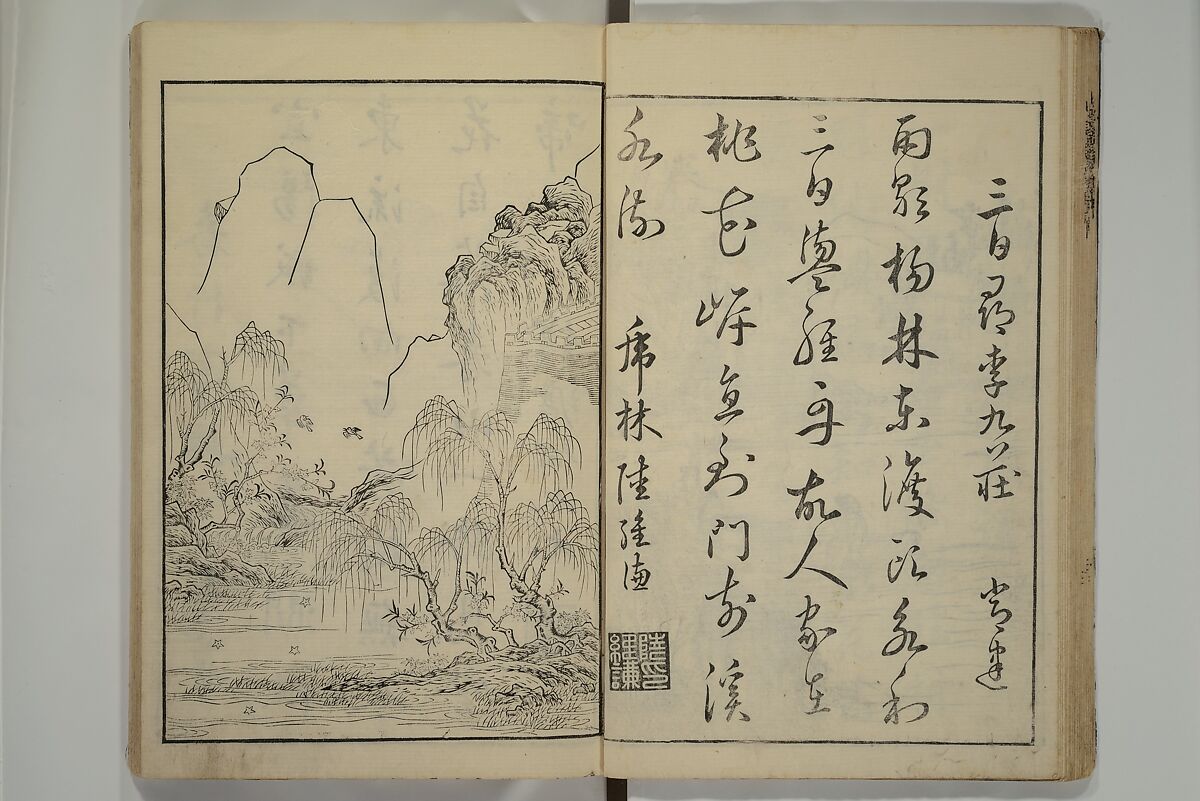 三日尋李九莊　常建
雨歇楊林東渡頭永和
三日盪輕舟故人家在
桃花岸直到門前溪
水流　虎林陸維謙